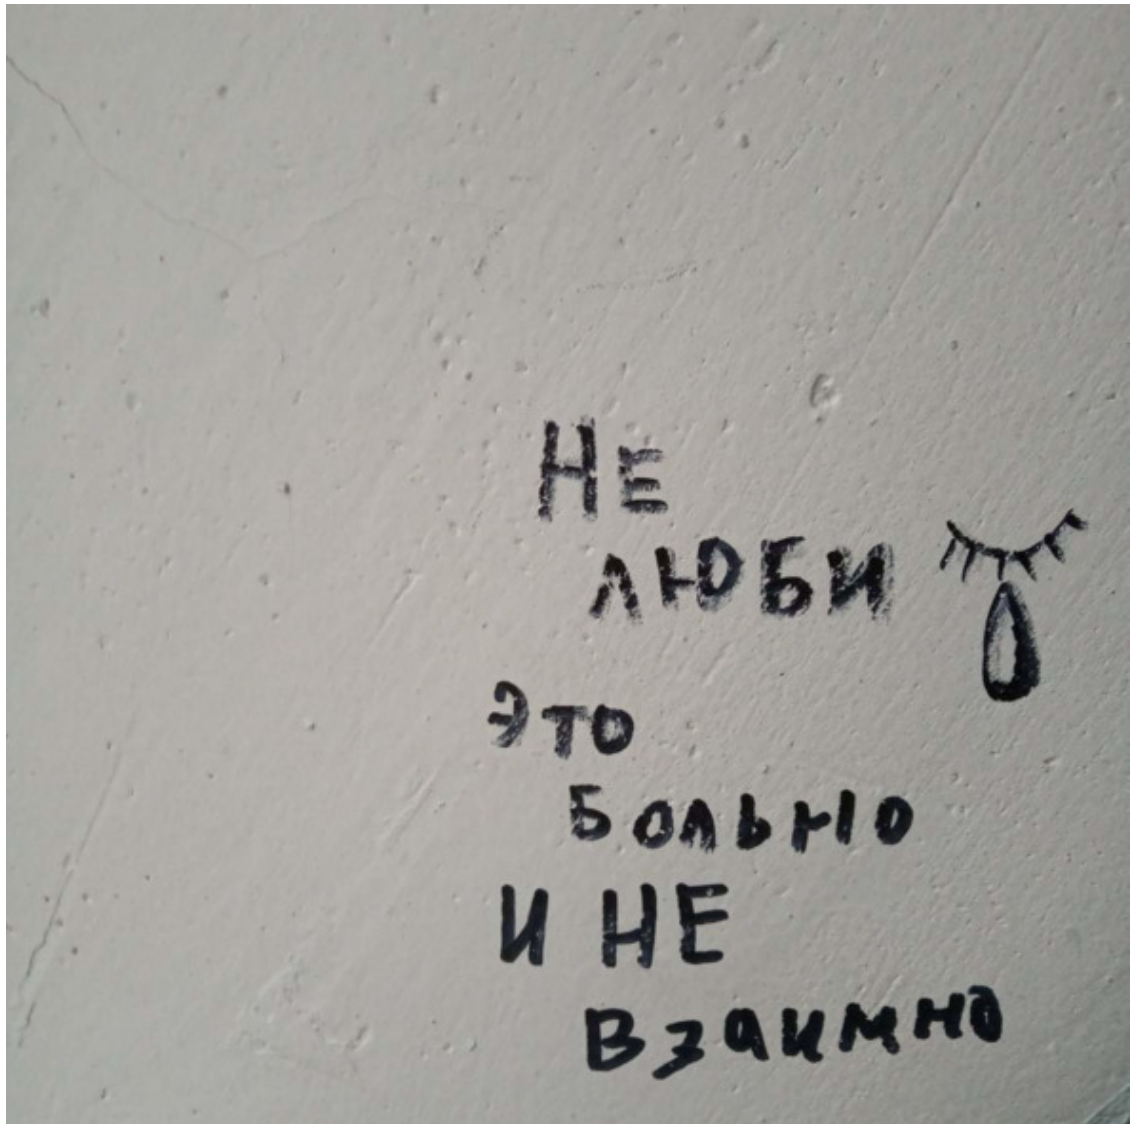 НЕ
ЛЮБИ
ЭТО
БОЛЬНО
И НЕ
ВЗАИМНО